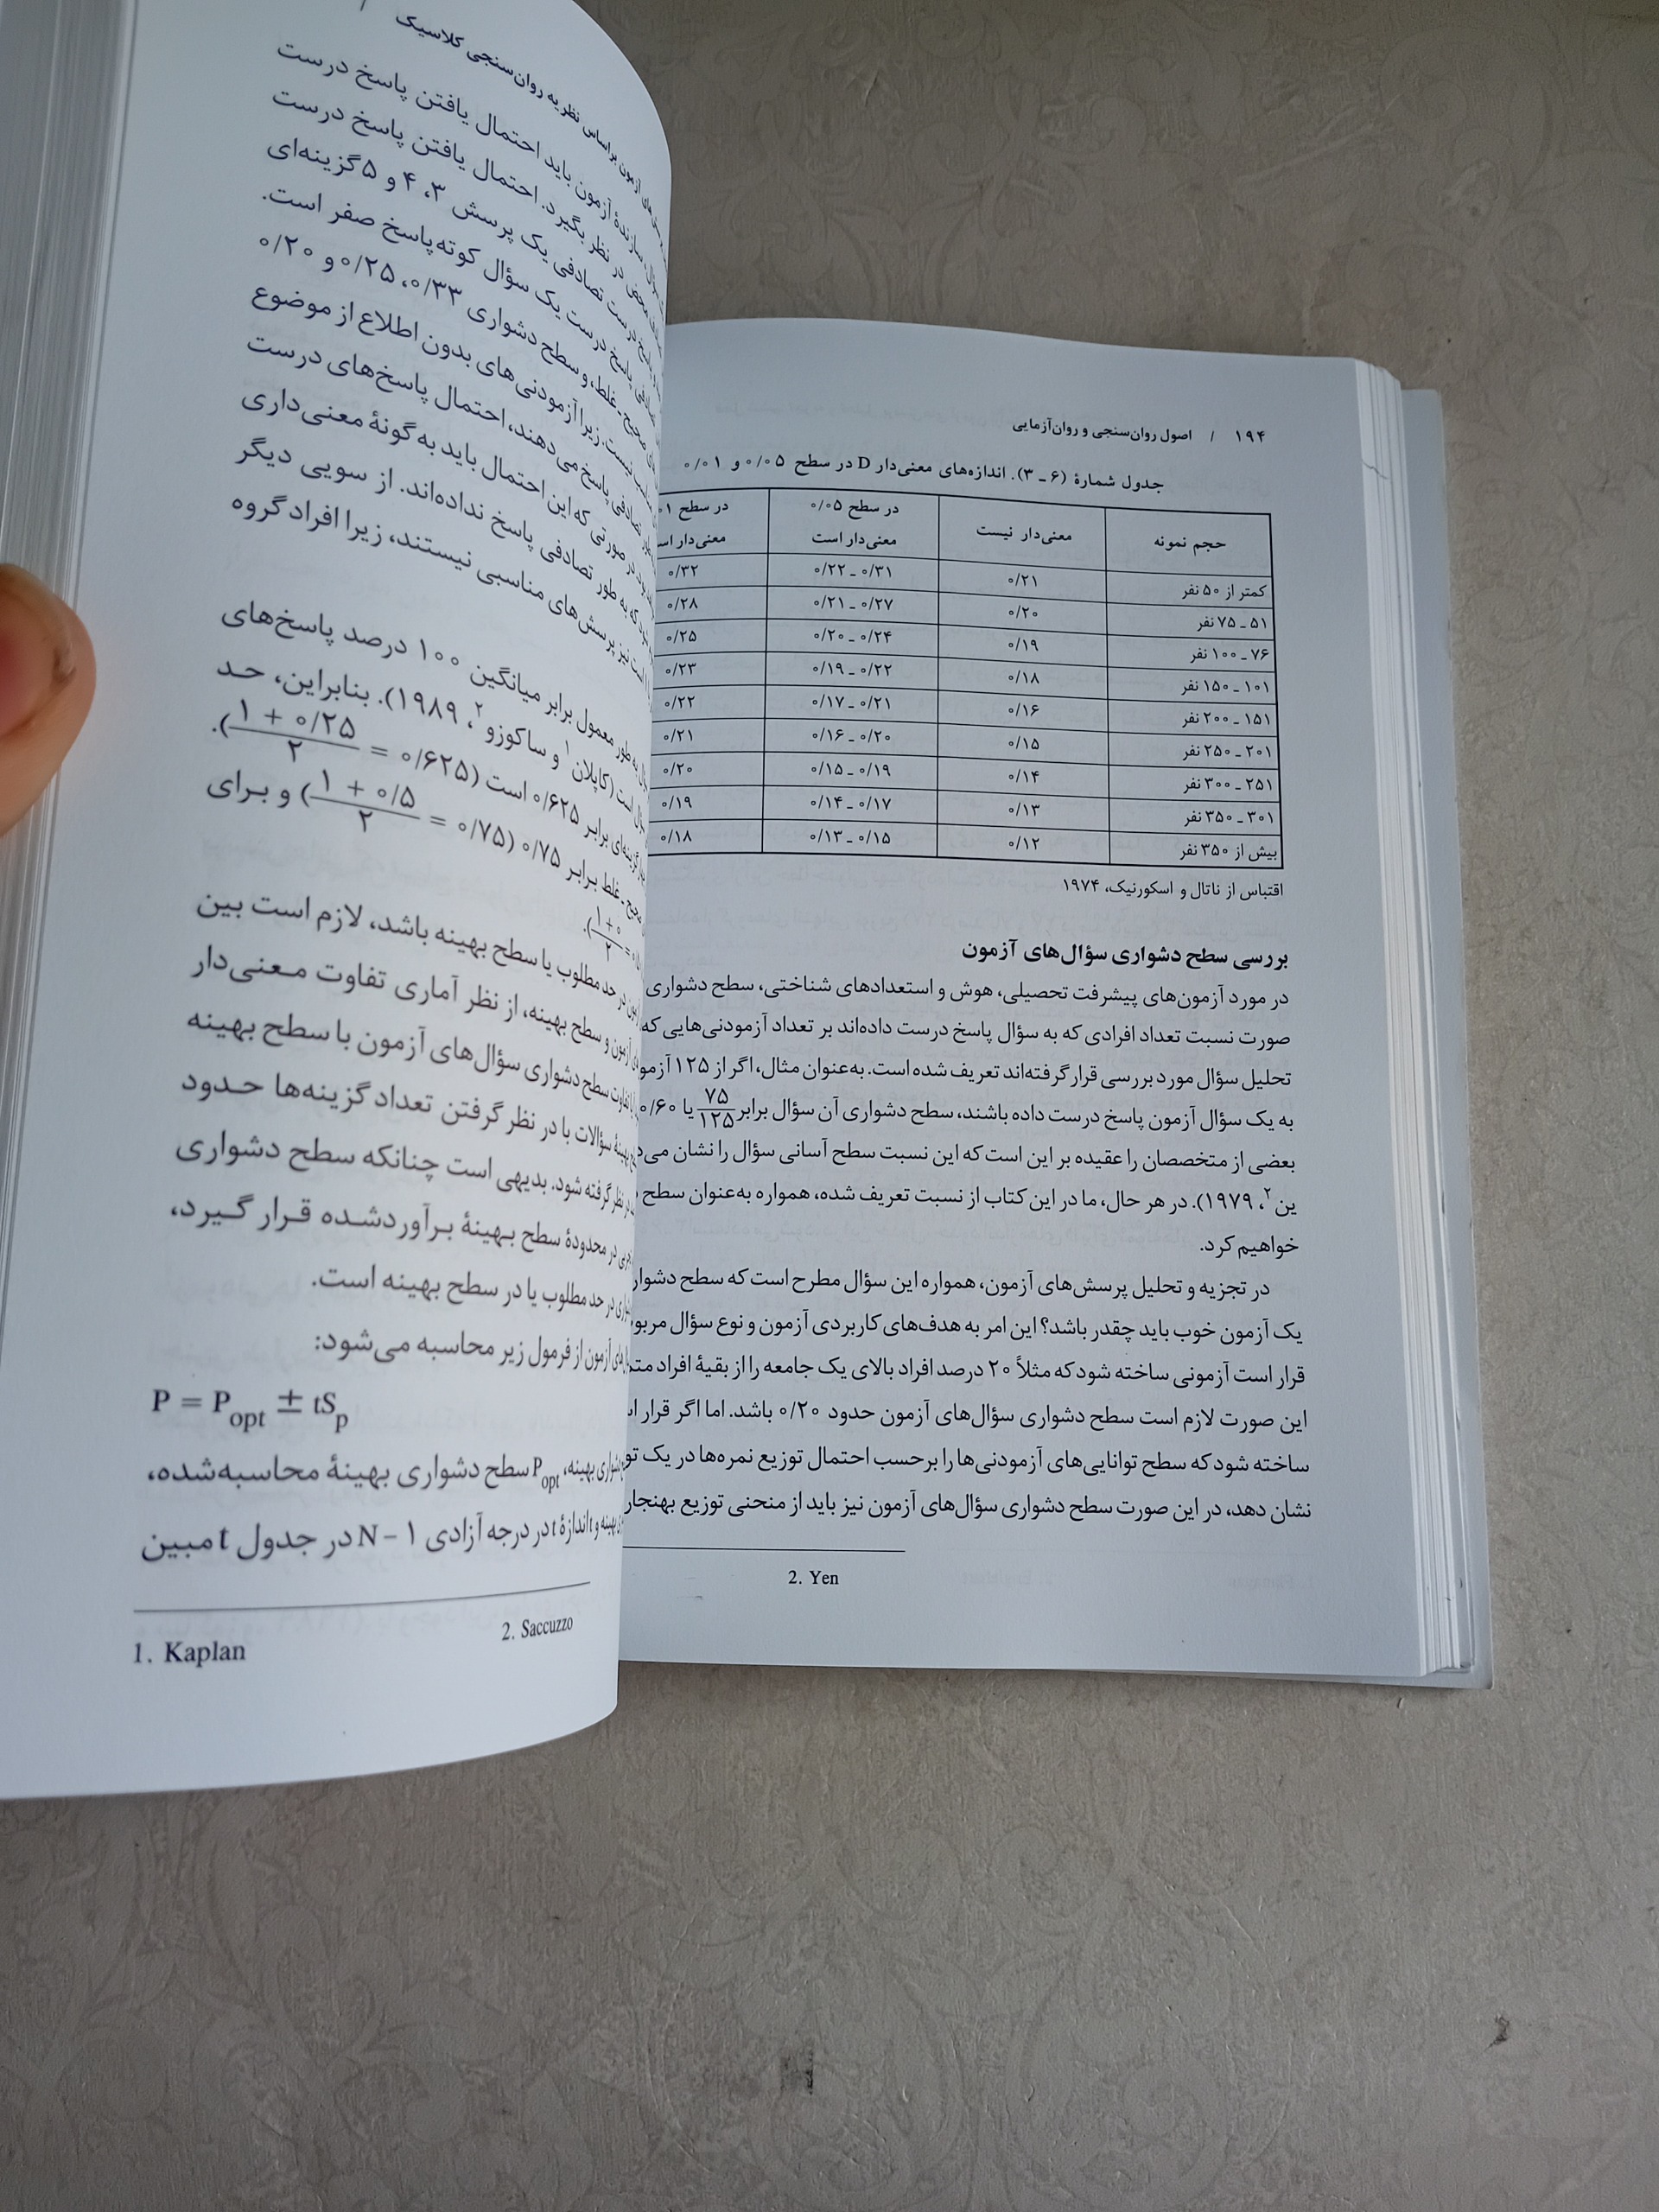 ۱۹۴ / اصول روان‌سنجی و روان‌آزمایی
جدول شمارهٔ (۶ ـ ۳). اندازه‌های معنی‌دار D در سطح ۰/۰۵ و ۰/۰۱
حجم نمونه معنی‌دار نیست در سطح ۰/۰۵ معنی‌دار است در سطح معنی‌دار
کمتر از ۵۰ نفر ۰/۲۱ ۰/۲۲ ـ ۰/۳۱ ۰/۳۲
۵۱ ـ ۷۵ نفر ۰/۲۰ ۰/۲۱ ـ ۰/۲۷ ۰/۲۸
۷۶ ـ ۱۰۰ نفر ۰/۱۹ ۰/۲۰ ـ ۰/۲۴ ۰/۲۵
۱۰۱ ـ ۱۵۰ نفر ۰/۱۸ ۰/۱۹ ـ ۰/۲۲ ۰/۲۳
۱۵۱ ـ ۲۰۰ نفر ۰/۱۶ ۰/۱۷ ـ ۰/۲۱ ۰/۲۲
۲۰۱ ـ ۲۵۰ نفر ۰/۱۵ ۰/۱۶ ـ ۰/۲۰ ۰/۲۱
۲۵۱ ـ ۳۰۰ نفر ۰/۱۴ ۰/۱۵ ـ ۰/۱۹ ۰/۲۰
۳۰۱ ـ ۳۵۰ نفر ۰/۱۳ ۰/۱۴ ـ ۰/۱۷ ۰/۱۹
بیش از ۳۵۰ نفر ۰/۱۲ ۰/۱۳ ـ ۰/۱۵ ۰/۱۸
اقتباس از ناتال و اسکورنیک، ۱۹۷۴
بررسی سطح دشواری سؤال‌های آزمون
در مورد آزمون‌های پیشرفت تحصیلی، هوش و استعدادهای شناختی، سطح دشواری
صورت نسبت تعداد افرادی که به سؤال پاسخ درست داده‌اند بر تعداد آزمودنی‌هایی که
تحلیل سؤال مورد بررسی قرار گرفته‌اند تعریف شده است. به‌عنوان مثال، اگر از ۱۲۵
به یک سؤال آزمون پاسخ درست داده باشند، سطح دشواری آن سؤال برابر ۷۵/۱۲۵ یا ۰/۶۰
بعضی از متخصصان را عقیده بر این است که این نسبت سطح آسانی سؤال را نشان
ین۲، ۱۹۷۹). در هر حال، ما در این کتاب از نسبت تعریف شده، همواره به‌عنوان سطح
خواهیم کرد.
در تجزیه و تحلیل پرسش‌های آزمون، همواره این سؤال مطرح است که سطح
یک آزمون خوب باید چقدر باشد؟ این امر به هدف‌های کاربردی آزمون و نوع سؤال
قرار است آزمونی ساخته شود که مثلاً ۲۰ درصد افراد بالای یک جامعه را از بقیهٔ افراد
این صورت لازم است سطح دشواری سؤال‌های آزمون حدود ۰/۲۰ باشد. اما اگر قرار
ساخته شود که سطح توانایی‌های آزمودنی‌ها را برحسب احتمال توزیع نمره‌ها در یک
نشان دهد، در این صورت سطح دشواری سؤال‌های آزمون نیز باید از منحنی توزیع
2. Yen
آزمون براساس نظریه روان‌سنجی کلاسیک /
سازندهٔ آزمون باید احتمال یافتن پاسخ درست
در نظر بگیرد. احتمال یافتن پاسخ درست
تصادفی یک پرسش ۳، ۴ و ۵ گزینه‌ای
پاسخ درست یک سؤال کوته‌پاسخ صفر است.
غلط، و سطح دشواری ۰/۳۳، ۰/۲۵ و ۰/۲۰
نیست. زیرا آزمودنی‌های بدون اطلاع از موضوع
تصادفی پاسخ می‌دهند، احتمال پاسخ‌های درست
در صورتی که این احتمال باید به گونهٔ معنی‌داری
که به طور تصادفی پاسخ نداده‌اند. از سویی دیگر
است نیز پرسش‌های مناسبی نیستند، زیرا افراد گروه
به طور معمول برابر میانگین ۱۰۰ درصد پاسخ‌های
است (کاپلان۱ و ساکوزو۲، ۱۹۸۹). بنابراین، حد
گزینه‌ای برابر ۰/۶۲۵ است (۰/۶۲۵ = (۱ + ۰/۲۵)/۲).
غلط برابر ۰/۷۵ (۰/۷۵ = (۱ + ۰/۵)/۲) و برای
= (۱+۰)/۲).
در حد مطلوب یا سطح بهینه باشد، لازم است بین
آزمون و سطح بهینه، از نظر آماری تفاوت معنی‌دار
تفاوت سطح دشواری سؤال‌های آزمون با سطح بهینه
بهینهٔ سؤالات با در نظر گرفتن تعداد گزینه‌ها حدود
در نظر گرفته شود. بدیهی است چنانکه سطح دشواری
در محدودهٔ سطح بهینهٔ برآوردشده قرار گیرد،
در حد مطلوب یا در سطح بهینه است.
آزمون از فرمول زیر محاسبه می‌شود:
P = Popt ± tSp
دشواری بهینه، Popt سطح دشواری بهینهٔ محاسبه‌شده،
بهینه و t اندازهٔ t در درجه آزادی N − ۱ در جدول t مبین
1. Kaplan 2. Saccuzzo